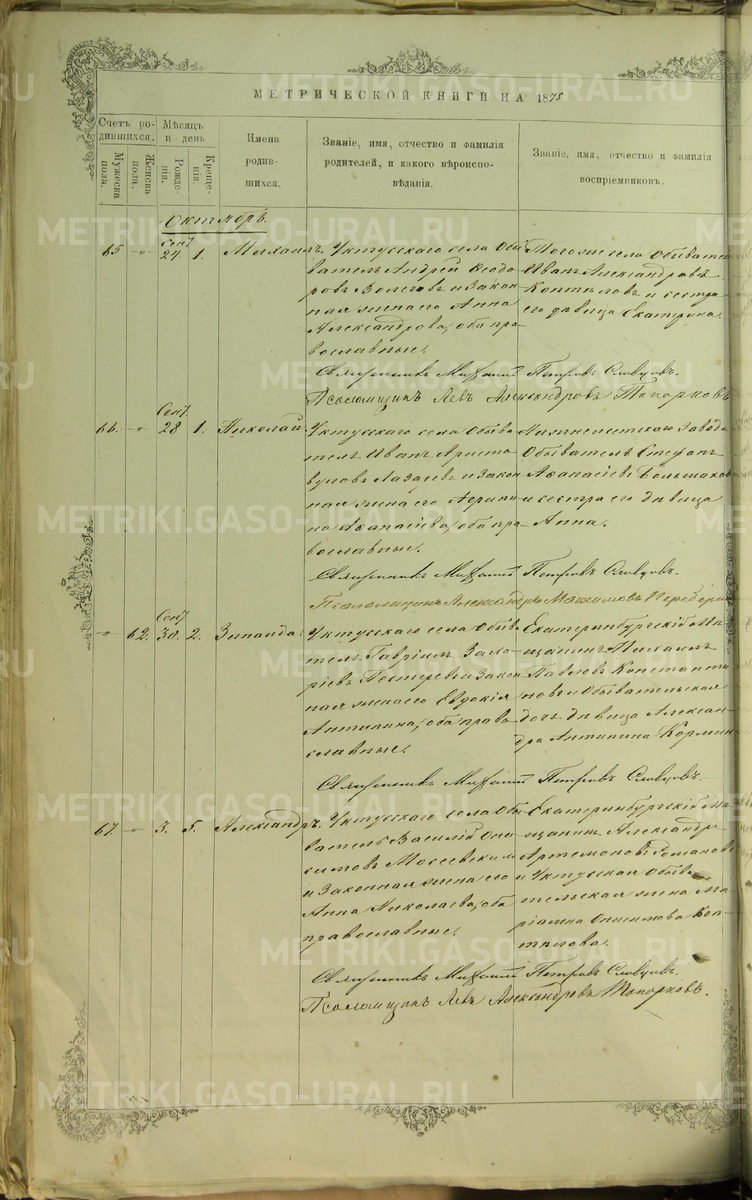 МЕТРИЧЕСКОЙ КНИГИ НА 1875
Счетъ ро-
дившихся.
Мѣсяцъ
и день
Мужеска
пола.
Женска
пола.
Рожде-
нія.
Креще-
нія.
Имена
родив-
шихся.
Званіе, имя, отчество и фамилія
родителей, и какого вѣроиспо-
вѣданія.
Званіе, имя, отчество и фамилія
воспріемниковъ.
Октябрь.
65 " Сент. 24 1. Михаилъ.
Уктусскаго села Обы
ватель Андрей Ѳеодо
ровъ и закон
ная жена его Анна
Александрова, оба пра
вославные.
Того же села Обывате
Иванъ Александровъ
Коптѣловъ и сестра
его дѣвица Екатерина.
Священникъ Михаилъ Петровъ Словцовъ.
Псаломщикъ Левъ Александровъ Топорковъ
66. " Сент. 28 1. Николай
Уктусскаго села Обыва
тель Иванъ Аристо
вуловъ Лазаревъ и закон
ная жена его Агрипи
на Аѳанасіева, оба пра
вославные.
Нижнеисетскаго Завода
Обыватель Стефанъ
Аѳанасіевъ Большаков
и сестра его дѣвица
Анна.
Священникъ Михаилъ Петровъ Словцовъ.
Псаломщикъ Александръ Максимовъ
" 62. Сент. 30. 2. Зинаида.
Уктусскаго села Обыв
тель Гавріилъ Заха
ріевъ Нестеревъ и закон
ная жена его Евдокія
Антипина, оба право
славные.
Екатеринбургскій Мѣ
щанинъ Михаилъ
Павловъ Константи
новъ и Обывательская
дочь дѣвица Алексан
дра Антипина Кормин
Священникъ Михаилъ Петровъ Словцовъ.
67. " 3. 5. Александръ.
Уктусскаго села Обы
ватель Василій Они
симовъ
и законная жена его
Анна Николаева, оба
православные.
Екатеринбургскій Мѣ
щанинъ Александръ
Артемоновъ Романовъ
и Уктусская Обыва
тельская жена Ма
ріамна Онисимова Коп
тѣлова.
Священникъ Михаилъ Петровъ Словцовъ.
Псаломщикъ Левъ Александровъ Топорковъ.
METRIKI.GASO-URAL.RU